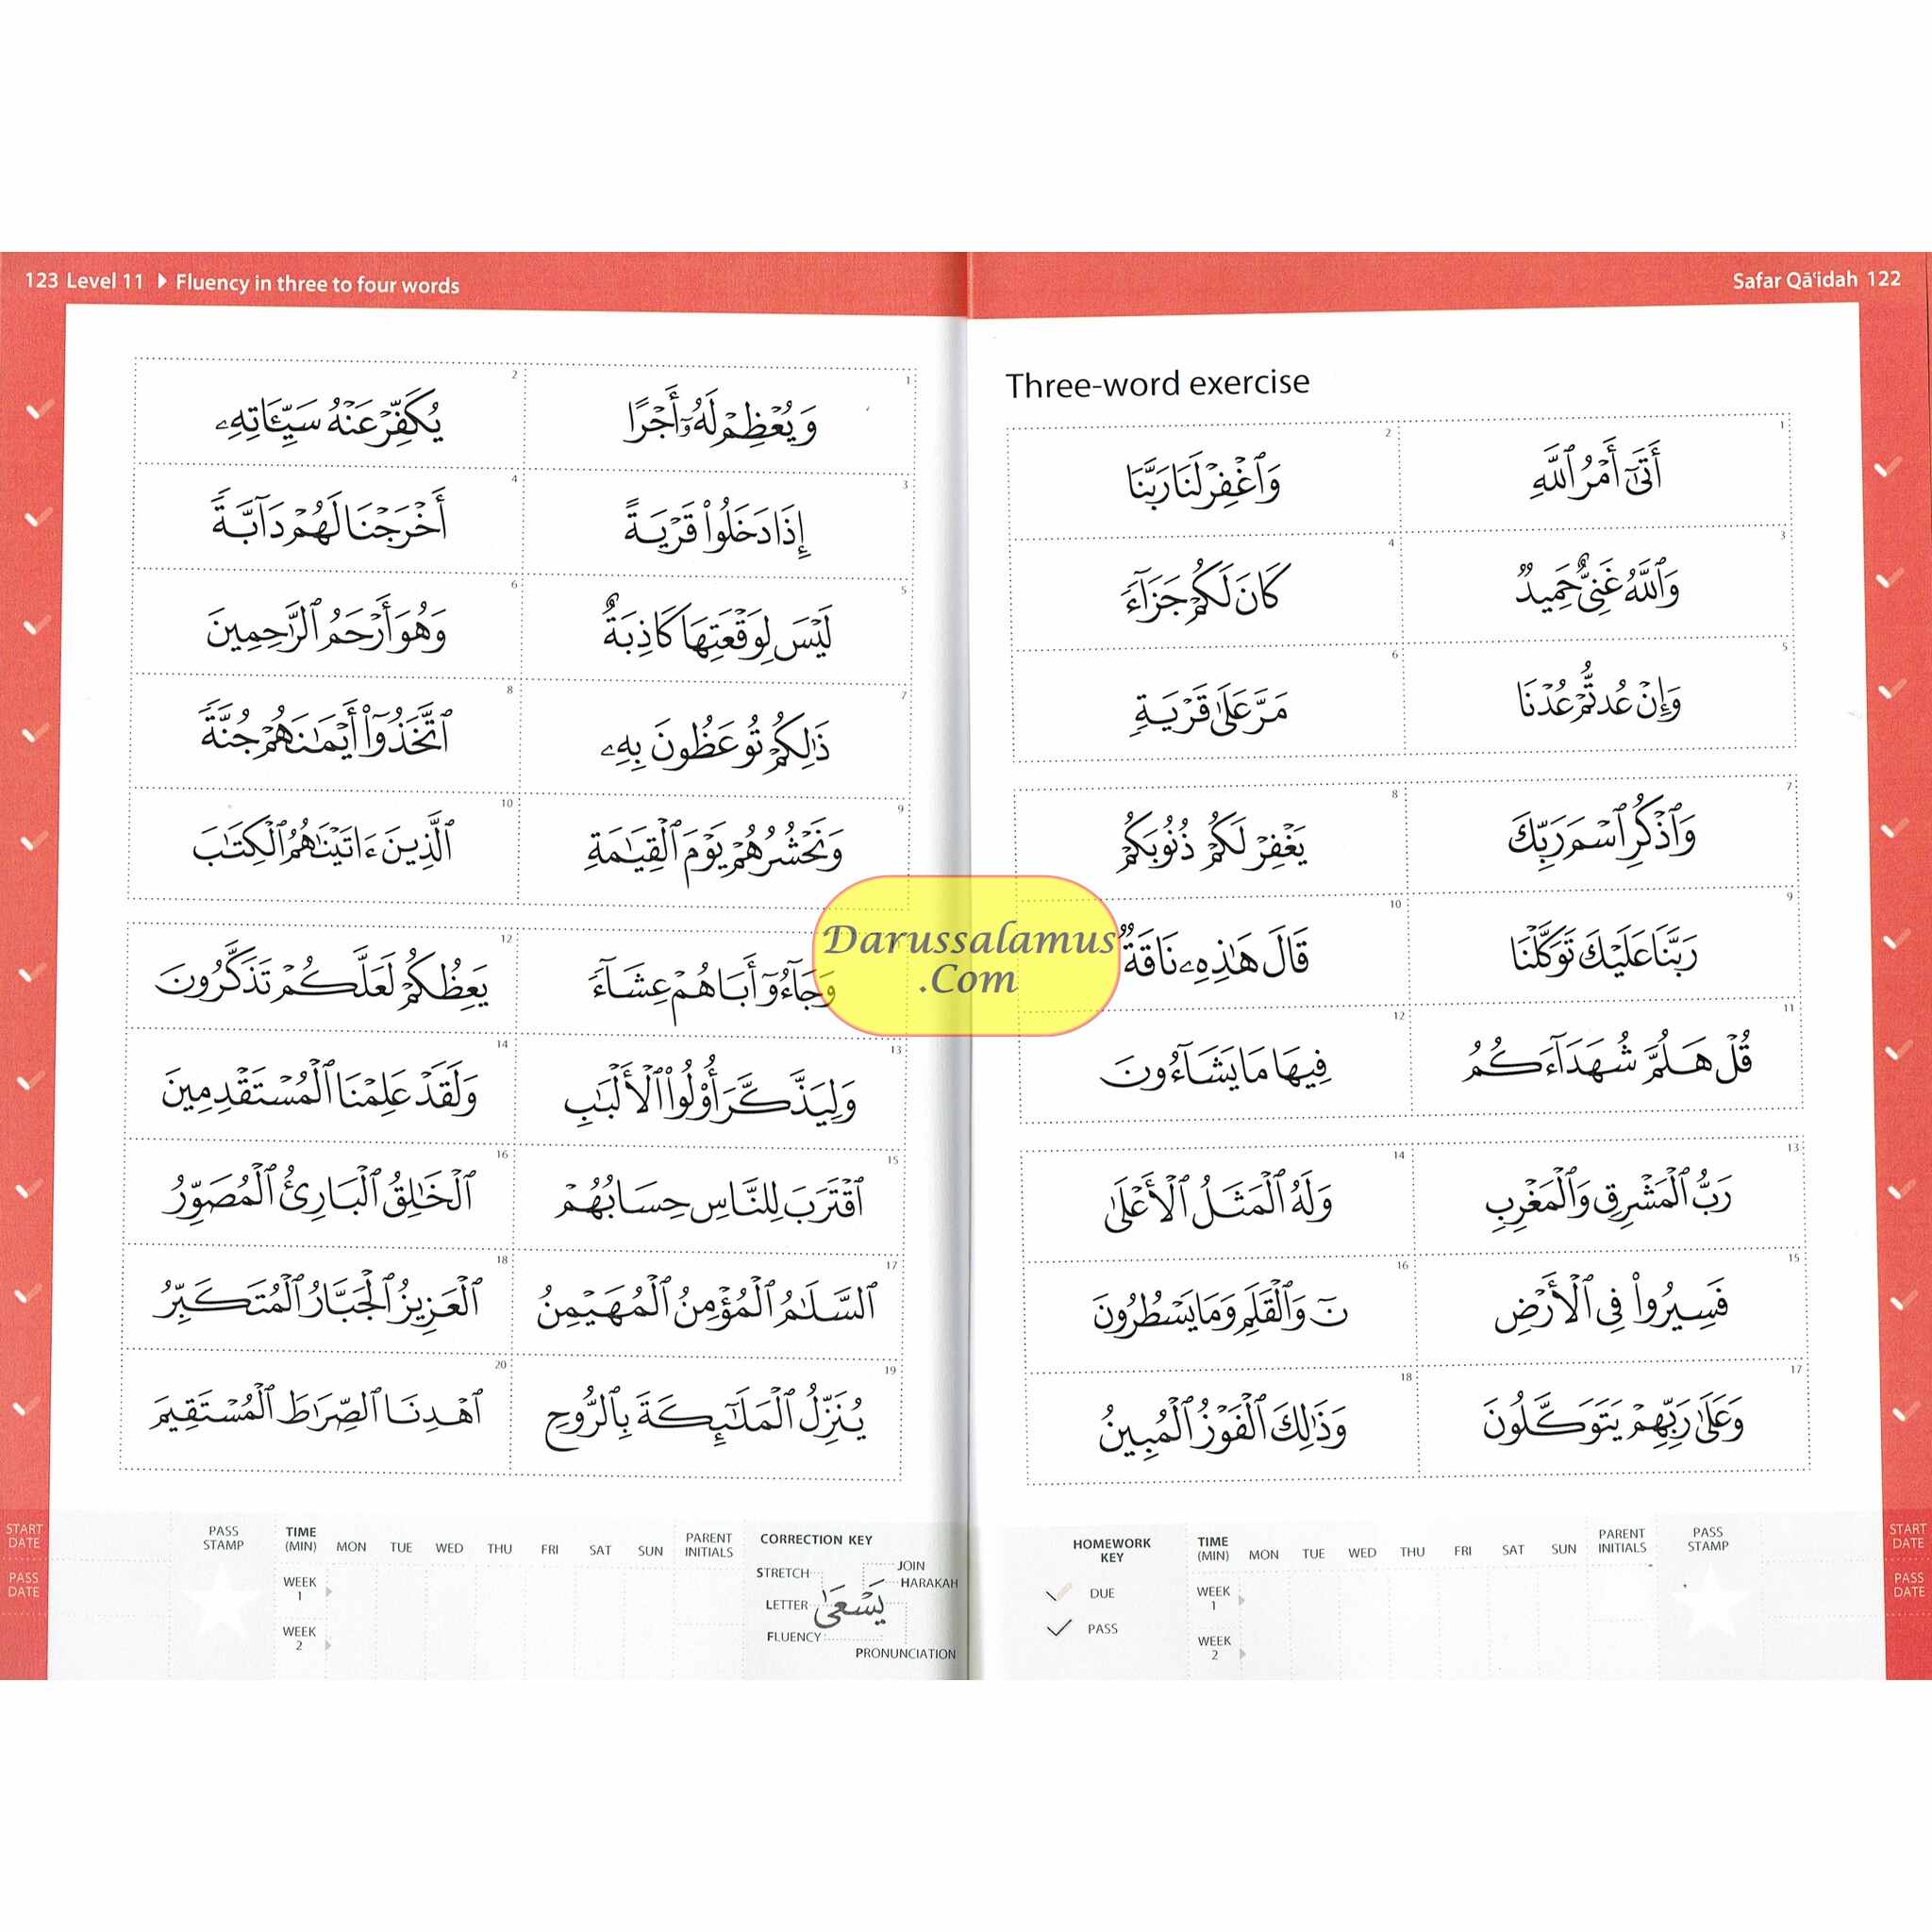 Safar Qāʿidah 122
Three-word exercise
1 أَتَىٰٓ أَمْرُ ٱللَّهِ
2 وَٱغْفِرْ لَنَا رَبَّنَا
3 وَٱللَّهُ غَنِىٌّ حَمِيدٌ
4 كَانَ لَكُمْ جَزَآءً
5 وَإِنْ عُدتُّمْ عُدْنَا
6 مَرَّ عَلَىٰ قَرْيَةٍ
7 وَٱذْكُرِ ٱسْمَ رَبِّكَ
8 يَغْفِرْ لَكُمْ ذُنُوبَكُمْ
9 رَبَّنَا عَلَيْكَ تَوَكَّلْنَا
10 قَالَ هَـٰذِهِۦ نَاقَةٌ
11 قُلْ هَلُمَّ شُهَدَآءَكُمُ
12 فِيهَا مَا يَشَآءُونَ
13 رَبُّ ٱلْمَشْرِقِ وَٱلْمَغْرِبِ
14 وَلَهُ ٱلْمَثَلُ ٱلْأَعْلَىٰ
15 فَسِيرُوا۟ فِى ٱلْأَرْضِ
16 نٓ وَٱلْقَلَمِ وَمَا يَسْطُرُونَ
17 وَعَلَىٰ رَبِّهِمْ يَتَوَكَّلُونَ
18 وَذَٰلِكَ ٱلْفَوْزُ ٱلْمُبِينُ
HOMEWORK KEY
DUE
PASS
TIME (MIN) MON TUE WED THU FRI SAT SUN PARENT INITIALS PASS STAMP
WEEK 1
WEEK 2
START DATE
PASS DATE
123 Level 11 Fluency in three to four words
1 وَيُعْظِمْ لَهُۥٓ أَجْرًا
2 يُكَفِّرْ عَنْهُ سَيِّـَٔاتِهِۦ
3 إِذَا دَخَلُوا۟ قَرْيَةً
4 أَخْرَجْنَا لَهُمْ دَآبَّةً
5 لَيْسَ لِوَقْعَتِهَا كَاذِبَةٌ
6 وَهُوَ أَرْحَمُ ٱلرَّٰحِمِينَ
7 ذَٰلِكُمْ تُوعَظُونَ بِهِۦ
8 ٱتَّخَذُوٓا۟ أَيْمَـٰنَهُمْ جُنَّةً
9 وَنَحْشُرُهُمْ يَوْمَ ٱلْقِيَـٰمَةِ
10 ٱلَّذِينَ ءَاتَيْنَـٰهُمُ ٱلْكِتَـٰبَ
وَجَآءُوٓ أَبَاهُمْ عِشَآءً
12 يَعِظُكُمْ لَعَلَّكُمْ تَذَكَّرُونَ
13 وَلِيَذَّكَّرَ أُو۟لُوا۟ ٱلْأَلْبَـٰبِ
14 وَلَقَدْ عَلِمْنَا ٱلْمُسْتَقْدِمِينَ
15 ٱقْتَرَبَ لِلنَّاسِ حِسَابُهُمْ
16 ٱلْخَـٰلِقُ ٱلْبَارِئُ ٱلْمُصَوِّرُ
17 ٱلسَّلَـٰمُ ٱلْمُؤْمِنُ ٱلْمُهَيْمِنُ
18 ٱلْعَزِيزُ ٱلْجَبَّارُ ٱلْمُتَكَبِّرُ
19 يُنَزِّلُ ٱلْمَلَـٰٓئِكَةَ بِٱلرُّوحِ
20 ٱهْدِنَا ٱلصِّرَٰطَ ٱلْمُسْتَقِيمَ
START DATE
PASS DATE
PASS STAMP TIME (MIN) MON TUE WED THU FRI SAT SUN PARENT INITIALS
WEEK 1
WEEK 2
CORRECTION KEY
STRETCH
JOIN
HARAKAH
LETTER
يَسْعَىٰ
FLUENCY
PRONUNCIATION
Darussalamus
.Com